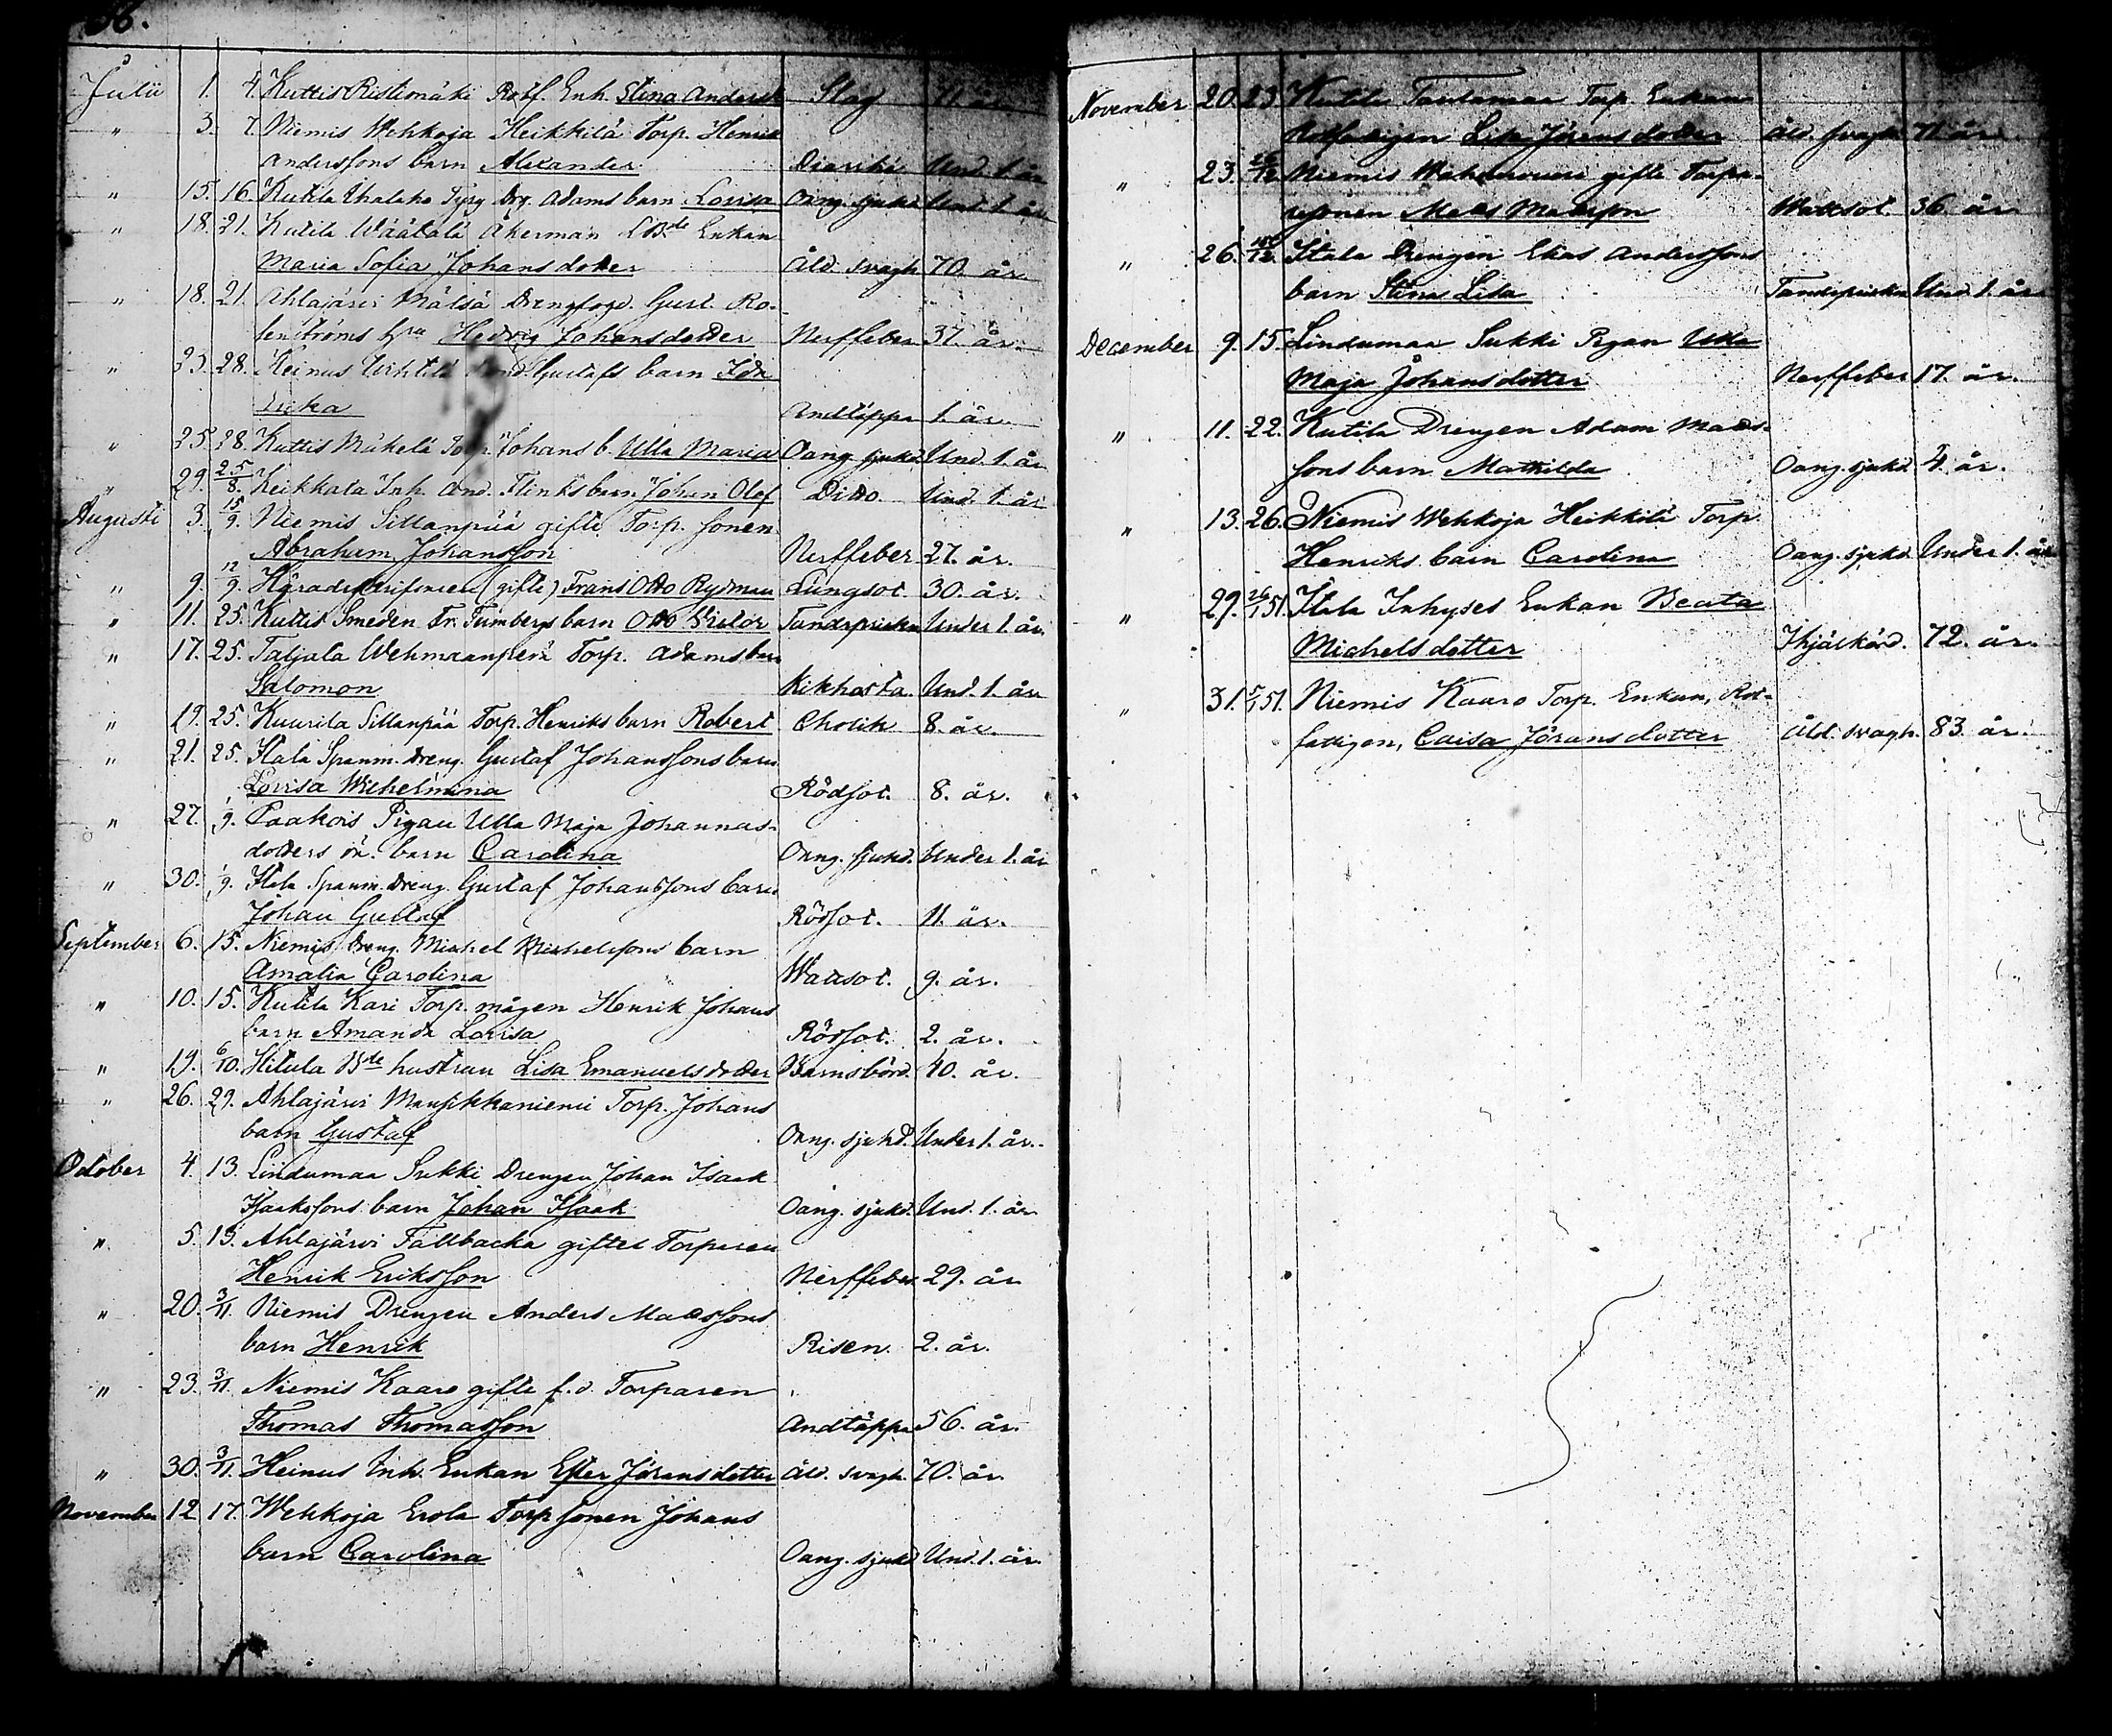 56.
Julii 1. 4. Kuttis Ristimäki Rotf. Enk. Stina Andersd Slag 71. år
" 3. 7. Niemis Wehkoja Heikkilä Torp. Henrik
Anderssons barn Alexander Diarrhé Und. 1. år
" 15. 16. Kutila Uhalaho Tysg Drg. Adams barn Lovisa Oang. sjukd Und. 1. år
" 18. 21. Kutila Wäätälä Åkerman Enkan
Maria Sofia Johansdotter Åld. svagh 70. år
" 18. 21. Ahlajärvi Mälsä Drengfogd. Gust. Ro-
senströms hru Hedvig Johansdotter Nerffeber 37. år.
" 23. 28. Heinus Uhtilä Gustafs barn Ida
Erika Andtäppa 1. år.
" 25. 28. Kuttis Mäkelä Torp. Johans b. Ulla Maria Oang. sjukd. Und. 1. år
" 29. 25/8. Keikkala Inh. And. Flinks barn Johan Olof Ditto Und. 1. år
Augusti 3. 15/9. Niemis Sillanpää gifte Torp. sonen
Abraham Johansson Nerffeber 27. år.
" 9. 12/9. Häradsskrifvaren (gifte) Frans Otto Rydman Lungsot 30. år.
" 11. 25. Kuttis Smeden Fr. Tumbergs barn Otto Victor Tandsprickn Under 1. år.
" 17. 25. Taljala Wehmaanperä Torp. Adams barn
Salomon Kikhosta. Und. 1. år
" 19. 25. Kuurila Sillanpää Torp. Henriks barn Robert Cholik 8. år.
" 21. 25. Itala Spanm. Dreng. Gustaf Johanssons barn
Lovisa Wilhelmina Rödsot. 8. år.
" 27. 1/9. Paakois Pigan Ulla Maja Johannas-
dotters oä. barn Carolina Oang. sjukd. Under 1. år
" 30. 1/9. Itala Spanm. Dreng. Gustaf Johanssons barn
Johan Gustaf Rödsot. 11. år.
September 6. 15. Niemis Dreng. Michel Michelssons barn
Amalia Carolina Wattsot. 9. år.
" 10. 15. Kutila Kari Torp. mågen Henrik Johans
barn Amanda Lovisa Rödsot. 2. år.
" 19. 6/10. Hitula Bde hustrun Lisa Emanuelsdotter Barnsbörd. 40. år.
" 26. 29. Ahlajärvi Mansikkaniemi Torp. Johans
barn Gustaf Oang. sjukd. Under 1. år.
October 4. 13. Lindumaa Sukki Drengen Johan Isaak
Isaakssons barn Johan Isaak Oang. sjukd. Und. 1. år
" 5. 13. Ahlajärvi Tallbacka gifter Torparen
Henrik Eriksson Nerffeber. 29. år
" 20. 3/11. Niemis Drengen Anders Matssons
barn Henrik Risen. 2. år.
" 23. 3/11. Niemis Kaaro gifte f. d. Torparen
Thomas Thomasson Andtäppa 56. år.
" 30. 3/11. Heinus Inh. Enkan Ester Jöransdotter Åld. svagh. 70. år.
November 12. 17. Wehkoja Erola Torp sonen Johans
barn Carolina Oang. sjukd Und. 1. år.
November 20. 23. Kutila Torp. Enkan
Rotfattigen Lisa Jöransdotter Åld. svagh 71. år.
" 23. Niemis gifte Torpa-
resonen Mats Matsson Wattsot. 36. år.
" 26. Itala Drengen Elias Anderssons
barn Stina Lisa Tandsprickn Und. 1. år.
December 9. 15. Lindumaa Sukki Pigan Ulla
Maja Johansdotter Nerffeber 17. år.
" 11. 22. Kutila Drengen Adam Mats-
sons barn Mathilda Oang. sjukd. 4. år.
" 13. 26. Niemis Wehkoja Heikkilä Torp.
Henriks barn Carolina Oang. sjukd Under 1. år
" 29. 26/1 51. Itala Inhyses Enkan Beata
Michelsdotter Ihjälkörd. 72. år.
" 31. 5/1 51. Niemis Kaaro Torp. Enkan, Rot-
fattigen, Caisa Jöransdotter Åld. svagh. 83. år.